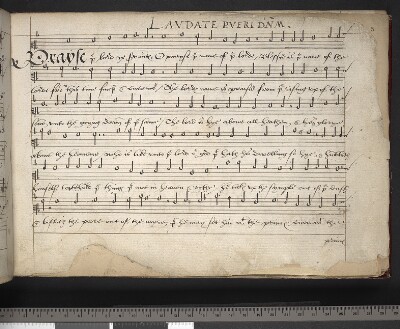 LAUDATE PUERI DÑM.
Prayse yͤ lorde ye servants, O prayse yͤ name of yͤ lorde, blessed is yͤ name of the
lorde from this time forth & evermore. The lordes name is praysed from yͤ rising up of the
sonn unto the going down of yͤ same. The lord is hye above all heathen, & his glorye
above the heavens who is like unto yͤ lorde oʳ god yͭ hath his dwelling so hye, & humbleth
himselfe to behold yͤ things yͭ are in heaven & erthe he taketh up the simple out of yͤ dust
& lifteth the poore out of the myer, yͭ he may set him wͭ the princes
princes